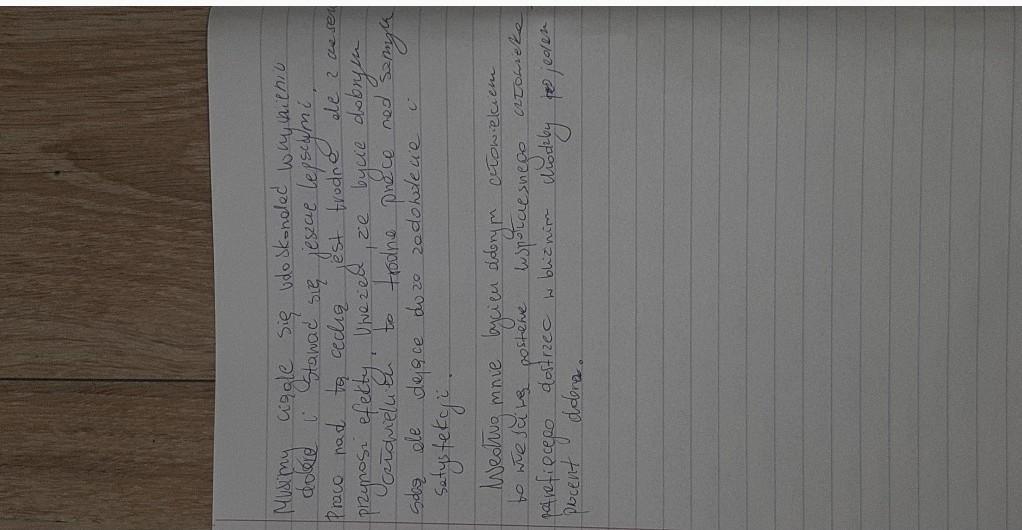 Musimy ciągle się udoskonalać w czynieniu
dobra i stawać się jeszcze lepszymi.
Praca nad tą cechą jest trudna ale z czasem
przynosi efekty. Uważam, że bycie dobrym
człowiekiem to trudna praca nad samym
sobą ale dające dużo zadowolenie i
satysfekcji.
Według mnie byciem dobrym człowiekiem
to właściwa postawa współczesnego człowieka
potrafiącego dostrzec w bliźnim choćby jeden
procent dobra.